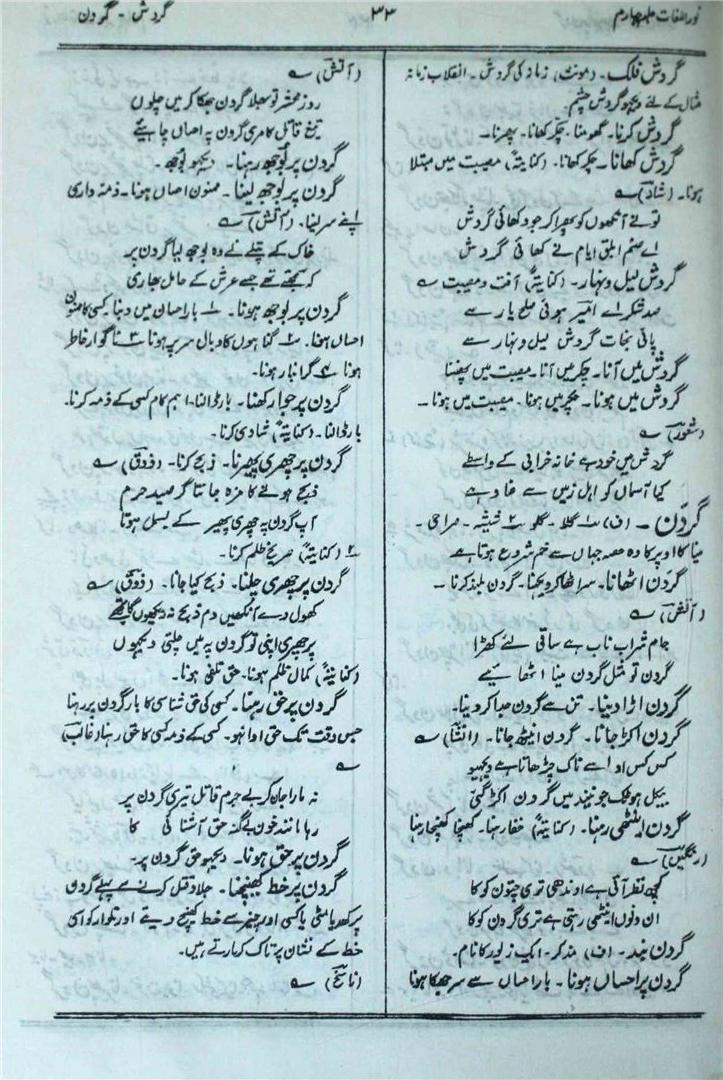 نوراللغات جلد چہارم
۳۳
گردش - گردن
گردش فلک۔ (مونث) زمانہ کی گردش۔ انقلاب زمانہ
مثال کے لئے دیکھو گردش چشم۔
گردش کرنا۔ گھومنا۔ چکر کھانا۔ پھرنا۔
گردش کھانا۔ چکر کھانا۔ (کنایتہً) مصیبت میں مبتلا
ہونا۔ (شاد) ؎
تو نے آنکھوں کو پھرا کر جو دکھائی گردش
اے صنم ابلق ایام نے کھائی گردش
گردش لیل و نہار۔ (کنایتہً) آفت و مصیبت ؎
صد شکر اے امیر ہوئی صلح یار سے
پائی نجات گردش لیل و نہار سے
گردش میں آنا۔ چکر میں آنا۔ مصیبت میں پھنسنا
گردش میں ہونا۔ چکر میں ہونا۔ مصیبت میں ہونا۔
(شعور) ؎
گردش میں خود ہے خانہ خرابی کے واسطے
کیا آسماں کو اہل زمیں سے عناد ہے
گردن۔ (ف) ۱ گلا۔ گلو ۲ شیشہ۔ صراحی۔
مینا کا اوپر کا وہ حصہ جہاں سے خم شروع ہوتا ہے
گردن اٹھانا۔ سر اٹھا کر دیکھنا۔ گردن بلند کرنا۔
(آتش) ؎
جام شراب ناب ہے ساقی لئے کھڑا
گردن تو مثل گردن مینا اٹھائیے
گردن اڑا دینا۔ تن سے گردن جدا کر دینا۔
گردن اکڑ جانا۔ گردن اینٹھ جانا۔ (انشا) ؎
کس کس ادا سے ناک چڑھاتا ہے دیکھیو
بیکل ہو ٹک جو نیند میں گردن اکڑ گئی
گردن اینٹھی رہنا۔ (کنایتہً) خفا رہنا۔ کھنچا کھنچا رہنا
(رنگین) ؎
کچھ نظر آتی ہے اوندھی تو ری چتون کوکا
ان دنوں اینٹھی رہتی ہے تری گردن کوکا
گردن بند۔ (ف) مذکر۔ ایک زیور کا نام۔
گردن پر احساں ہونا۔ بار احساں سے سر جھکا ہونا
(آتش) ؎
روز محشر تو بھلا گردن جھکا کر میں چلوں
تیغ قاتل کا مری گردن پہ احساں چاہیے
گردن پر بوجھ رہنا۔ دیکھو بوجھ۔
گردن پر بوجھ لینا۔ ممنون احساں ہونا۔ ذمہ داری
اپنے سر لینا۔ (آتش) ؎
خاک کے پتلے نے وہ بوجھ لیا گردن پر
کہ سمجھتے تھے جسے عرش کے حامل بھاری
گردن پر بوجھ ہونا۔ ۱ بار احسان میں دبنا کسی کا ممنون
احساں ہونا۔ ۲ گناہوں کا وبال سر پر ہونا ۳ ناگوار خاطر
ہونا ۴ گرانبار ہونا۔
گردن پر جوا رکھنا۔ بار ڈالنا۔ اہم کام کسی کے ذمہ کرنا۔
بار ڈالنا۔ (کنایتہً) شادی کرنا۔
گردن پر چھری پھیرنا۔ ذبح کرنا۔ (ذوق) ؎
ذبح ہونے کا مزہ جانتا گر صید حرم
آپ گردن پہ چھری پھیر کے بسمل ہوتا
۲ (کنایتہً) صریح ظلم کرنا۔
گردن پر چھری چلنا۔ ذبح کیا جانا۔ (ذوق) ؎
کھول دے آنکھیں دم ذبح نہ دیکھوں گا تجھے
پر چھری اپنی تو گردن پہ میں چلتی دیکھوں
(کنایتہً) کمال ظلم ہونا۔ حق تلفی ہونا۔
گردن پر حق رہنا۔ کسی کی حق شناسی کا بار گردن پر رہنا
جس وقت تک حق ادا ہو۔ کسی کے ذمہ کسی کا حق رہنا (غالب)
؎
نہ مارا جان کر بے جرم قاتل تیری گردن پر
رہا مانند خون بے گنہ حق آشنائی کا
گردن پر حق ہونا۔ دیکھو حق گردن پر۔
گردن پر خط کھینچنا۔ جلاد قتل کرنے سے پہلے گردن
پر کھریا مٹی یا کسی اور چیز سے خط کھینچ دیتے اور تلوار کو اسی
خط کے نشان پر تاک کر مارتے ہیں۔
(ناسخ) ؎